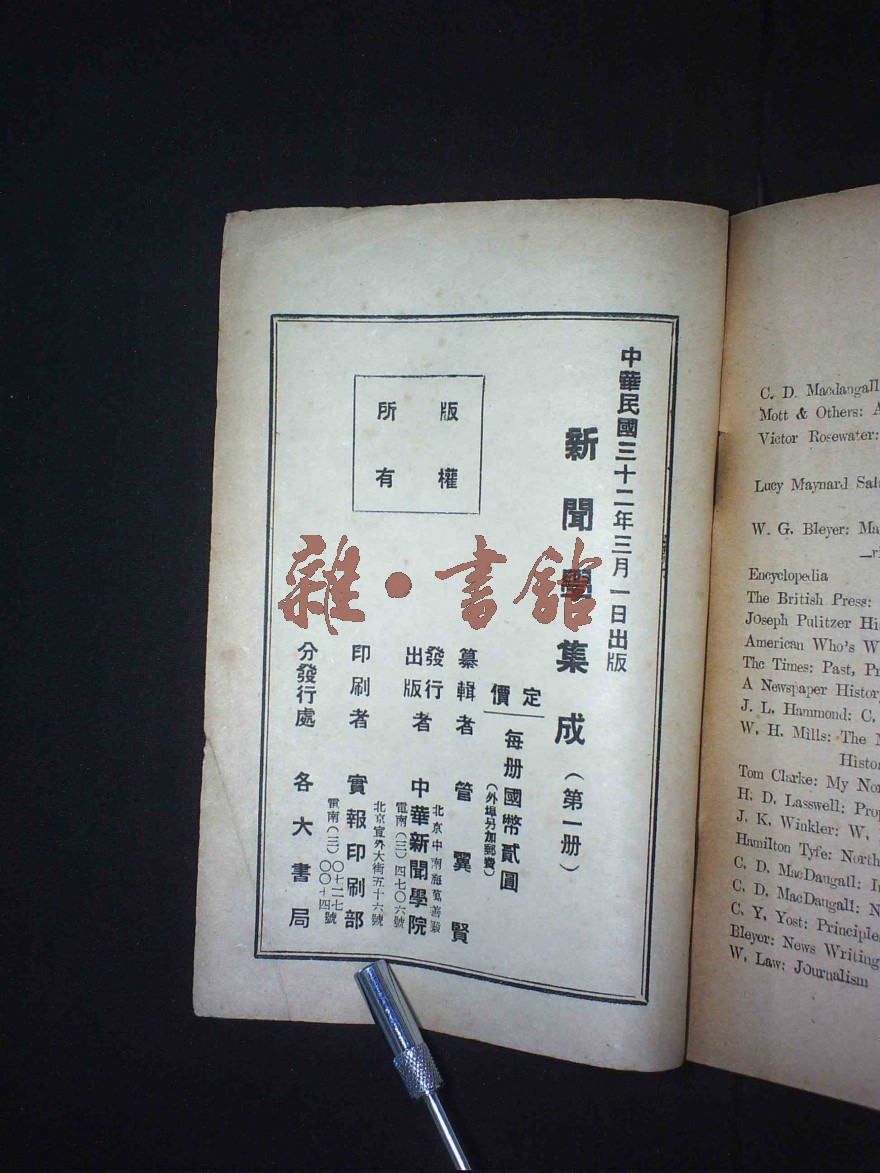 中華民國三十二年三月一日出版
新聞學集成（第一册）
定價
每册國幣貳圓
（外埠另加郵費）
纂輯者 管翼賢
發行
出版者 中華新聞學院
北京中南海萬善殿
電南（三）四七〇六號
印刷者 實報印刷部
北京宣外大街五十六號
電南（三）
分發行處 各大書局
版權
所有
雜·書館
C. D. Macdangall
Mott & Others: A
Victor Rosewater:
Lucy Maynard Sal
W. G. Bleyer: Ma
Encyclopedia
The British Press:
Joseph Pulitzer Hi
American Who's W
The Times: Past, Pr
A Newspaper History
J. L. Hammond: C.
W. H. Mills: The M
Histor
Tom Clarke: My No
H. D. Lasswell: Prop
J. K. Winkler: W.
Hamilton Tyfe: North
C. D. MacDaugall: I
C. D. MacDaugall: N
C. Y. Yost: Principle
Bleyor: News Writing
W. Law: Journalism